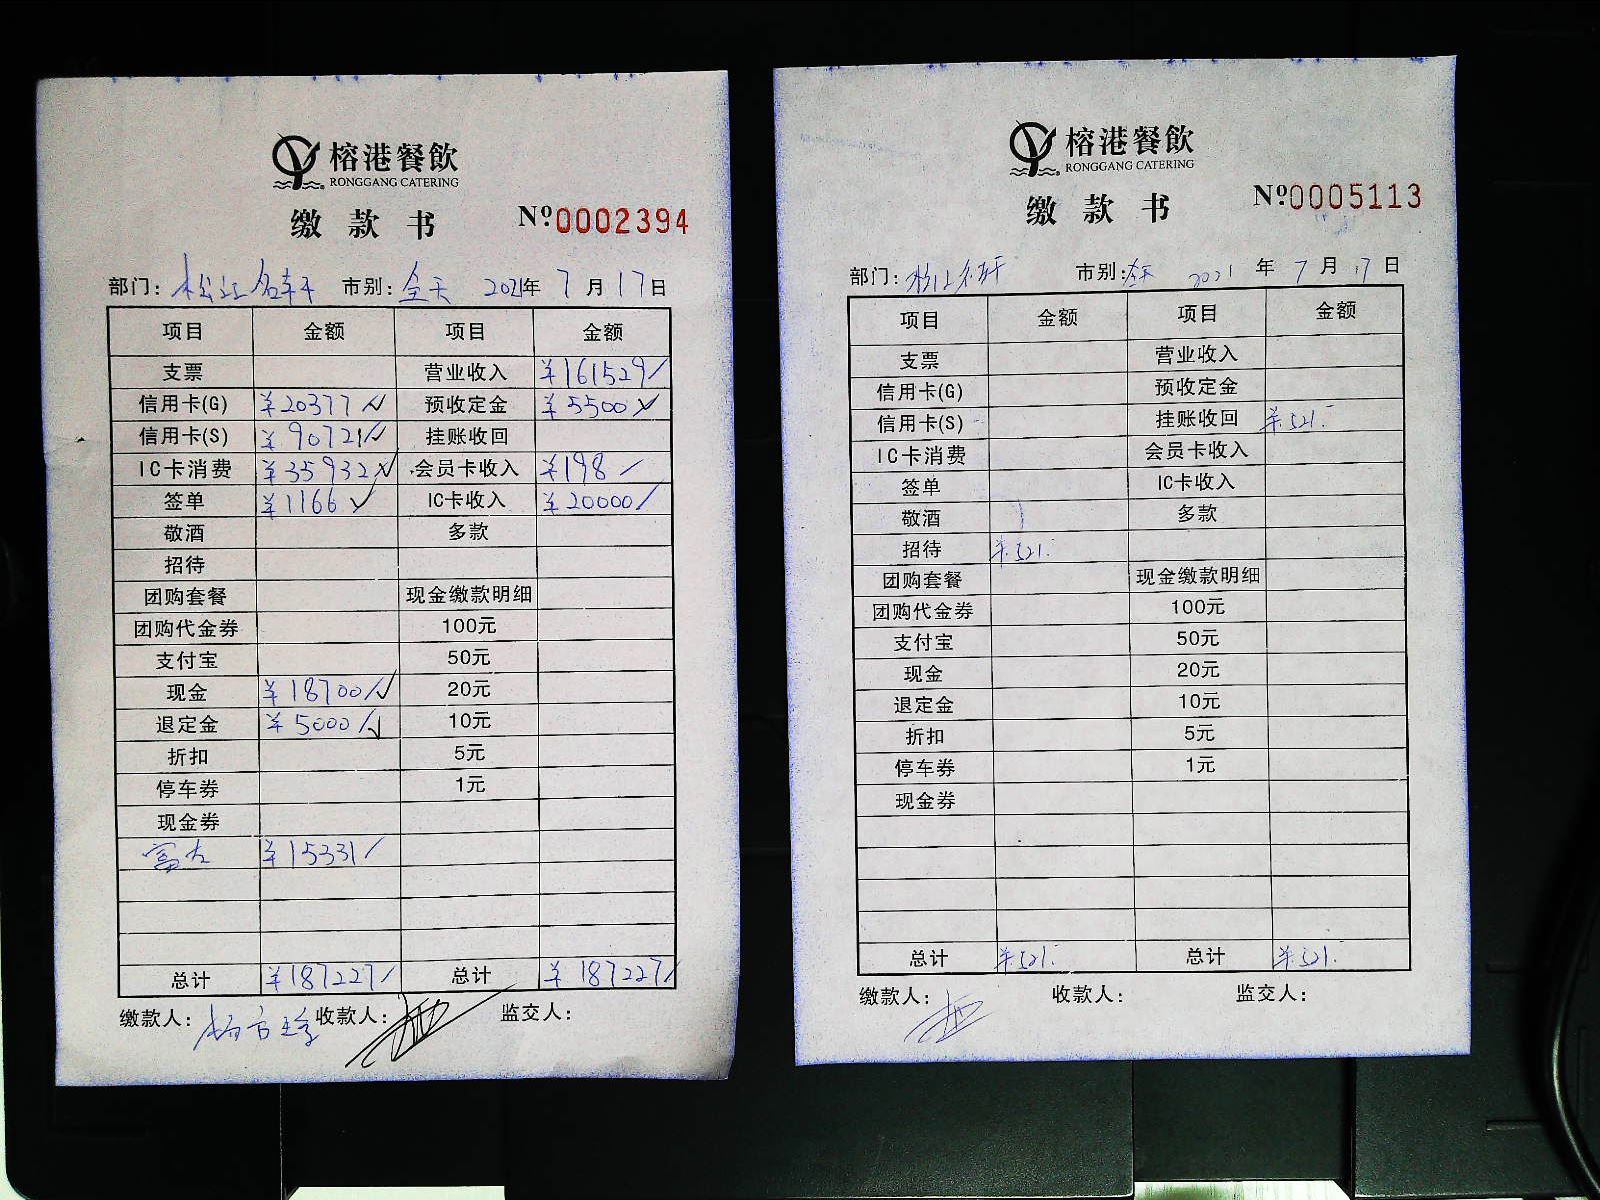 榕港餐飲
RONGGANG CATERING
缴款书 №0002394
部门: 松江名轩 市别: 全天 2021年 7月 17日
项目 金额 项目 金额
支票 营业收入 ¥161529/
信用卡(G) ¥20377 预收定金 ¥5500
信用卡(S) ¥90721/ 挂账收回
IC卡消费 ¥35932 会员卡收入 ¥198/
签单 ¥1166 IC卡收入 ¥20000/
敬酒 多款
招待
团购套餐 现金缴款明细
团购代金券 100元
支付宝 50元
现金 ¥18700/ 20元
退定金 ¥5000/ 10元
折扣 5元
停车券 1元
现金券
¥15331/
总计 ¥187227/ 总计 ¥187227/
缴款人: 收款人: 监交人:
榕港餐飲
RONGGANG CATERING
缴款书 №0005113
部门: 松江名轩 市别: 全天 2021年 7月 17日
项目 金额 项目 金额
支票 营业收入
信用卡(G) 预收定金
信用卡(S) 挂账收回 ¥521.
IC卡消费 会员卡收入
签单 IC卡收入
敬酒 多款
招待 ¥521.
团购套餐 现金缴款明细
团购代金券 100元
支付宝 50元
现金 20元
退定金 10元
折扣 5元
停车券 1元
现金券
总计 ¥521. 总计 ¥521.
缴款人: 收款人: 监交人: